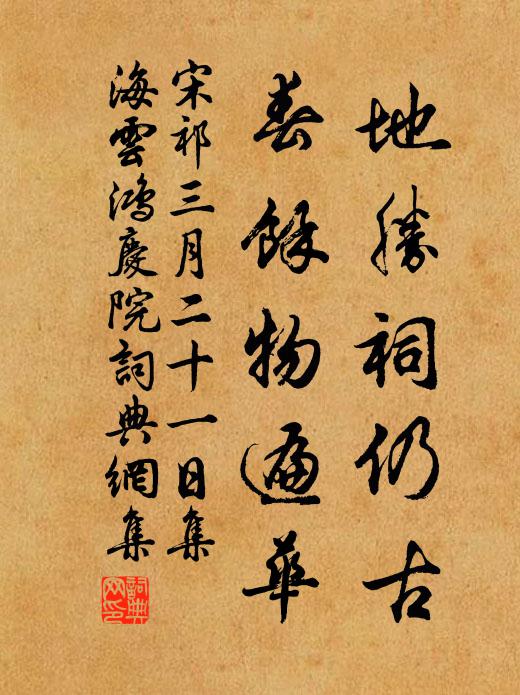 地勝祠仍古
春餘物遍華
宋祁三月二十一日集
海雲鴻慶院詞典網集
詞典網印